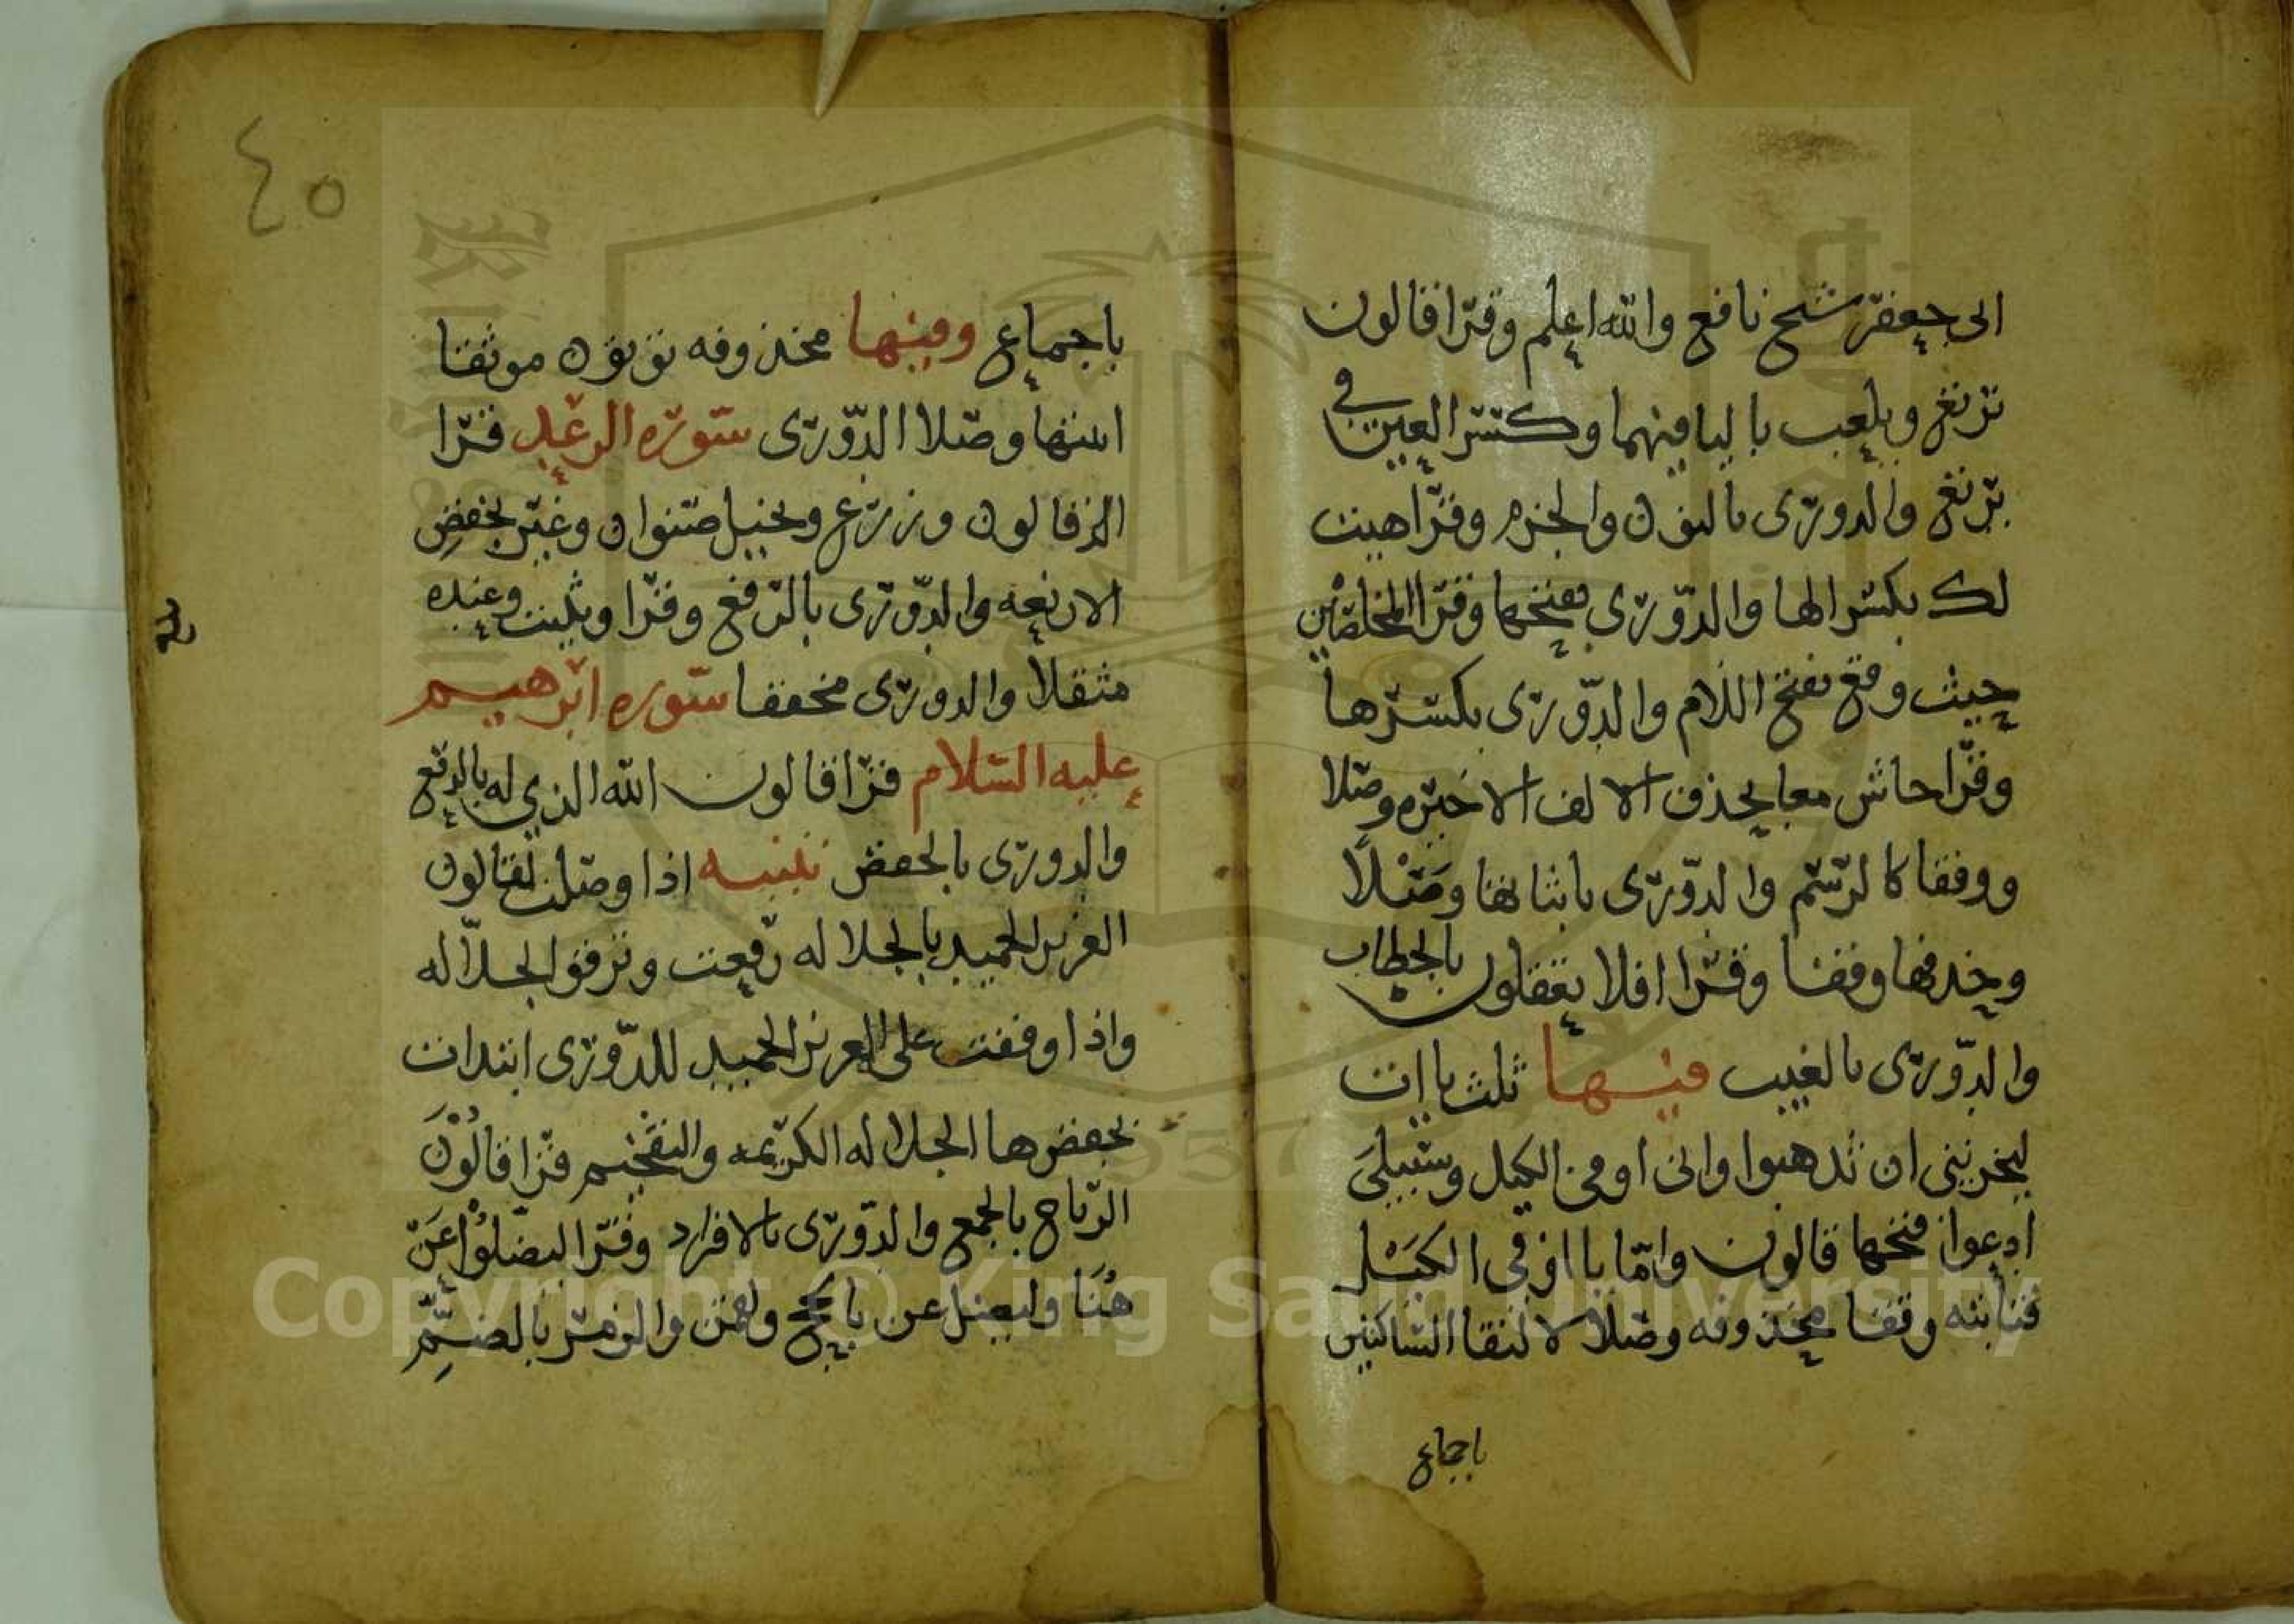 الى جعفر شيخ نافع والله اعلم وقرا قالون
نرتع ويلعب باليا فيهما وكسر العين في
يرتع والدوري بالنون والجزم وقرا هيت
لك بكسر الها والدوري بفتحها وقرا المخلصين
حيث وقع بفتح اللام والدوري بكسرها
وقرا حاش معا بحذف الالف الاخيره وصلا
ووقفا كالرسم والدوري باثباتها وصلا
وحذفها وقفا وقرا افلا يعقلون بالخطاب
والدوري بالغيب فيها ثلث ياات
ليحزنني ان تذهبوا واني اوفي الكيل وسبيلي
ادعوا فتحها قالون واما يا اوفي الكيل
فثابته وقفا محذوفه وصلا لالتقا الساكنين
باجماع
٤٥
باجماع ومنها محذوفه تؤتون موثقا
اثبتها وصلا الدوري سوره الرعد قرا
المر قالون وزرع ونخيل صنوان وغير بخفض
الاربعه والدوري بالرفع وقرا ويثبت وعنده
مثقلا والدوري مخففا سوره ابرهيم
عليه السلام قرا قالون الله الذي له بالرفع
والدوري بالخفض تنبيه اذا وصلت لقالون
العزيز الحميد بالجلاله رفعت وترقق الجلاله
واذا وقفت على العزيز الحميد للدوري ابتدات
بخفض ها الجلاله الكريمه والتفخيم قرا قالون
الرياح بالجمع والدوري بالافراد وقرا ليضلوا عن
هنا وليضل عن بالحج ولقمن والزمر بالضم
Copyright © King Saud University
1957